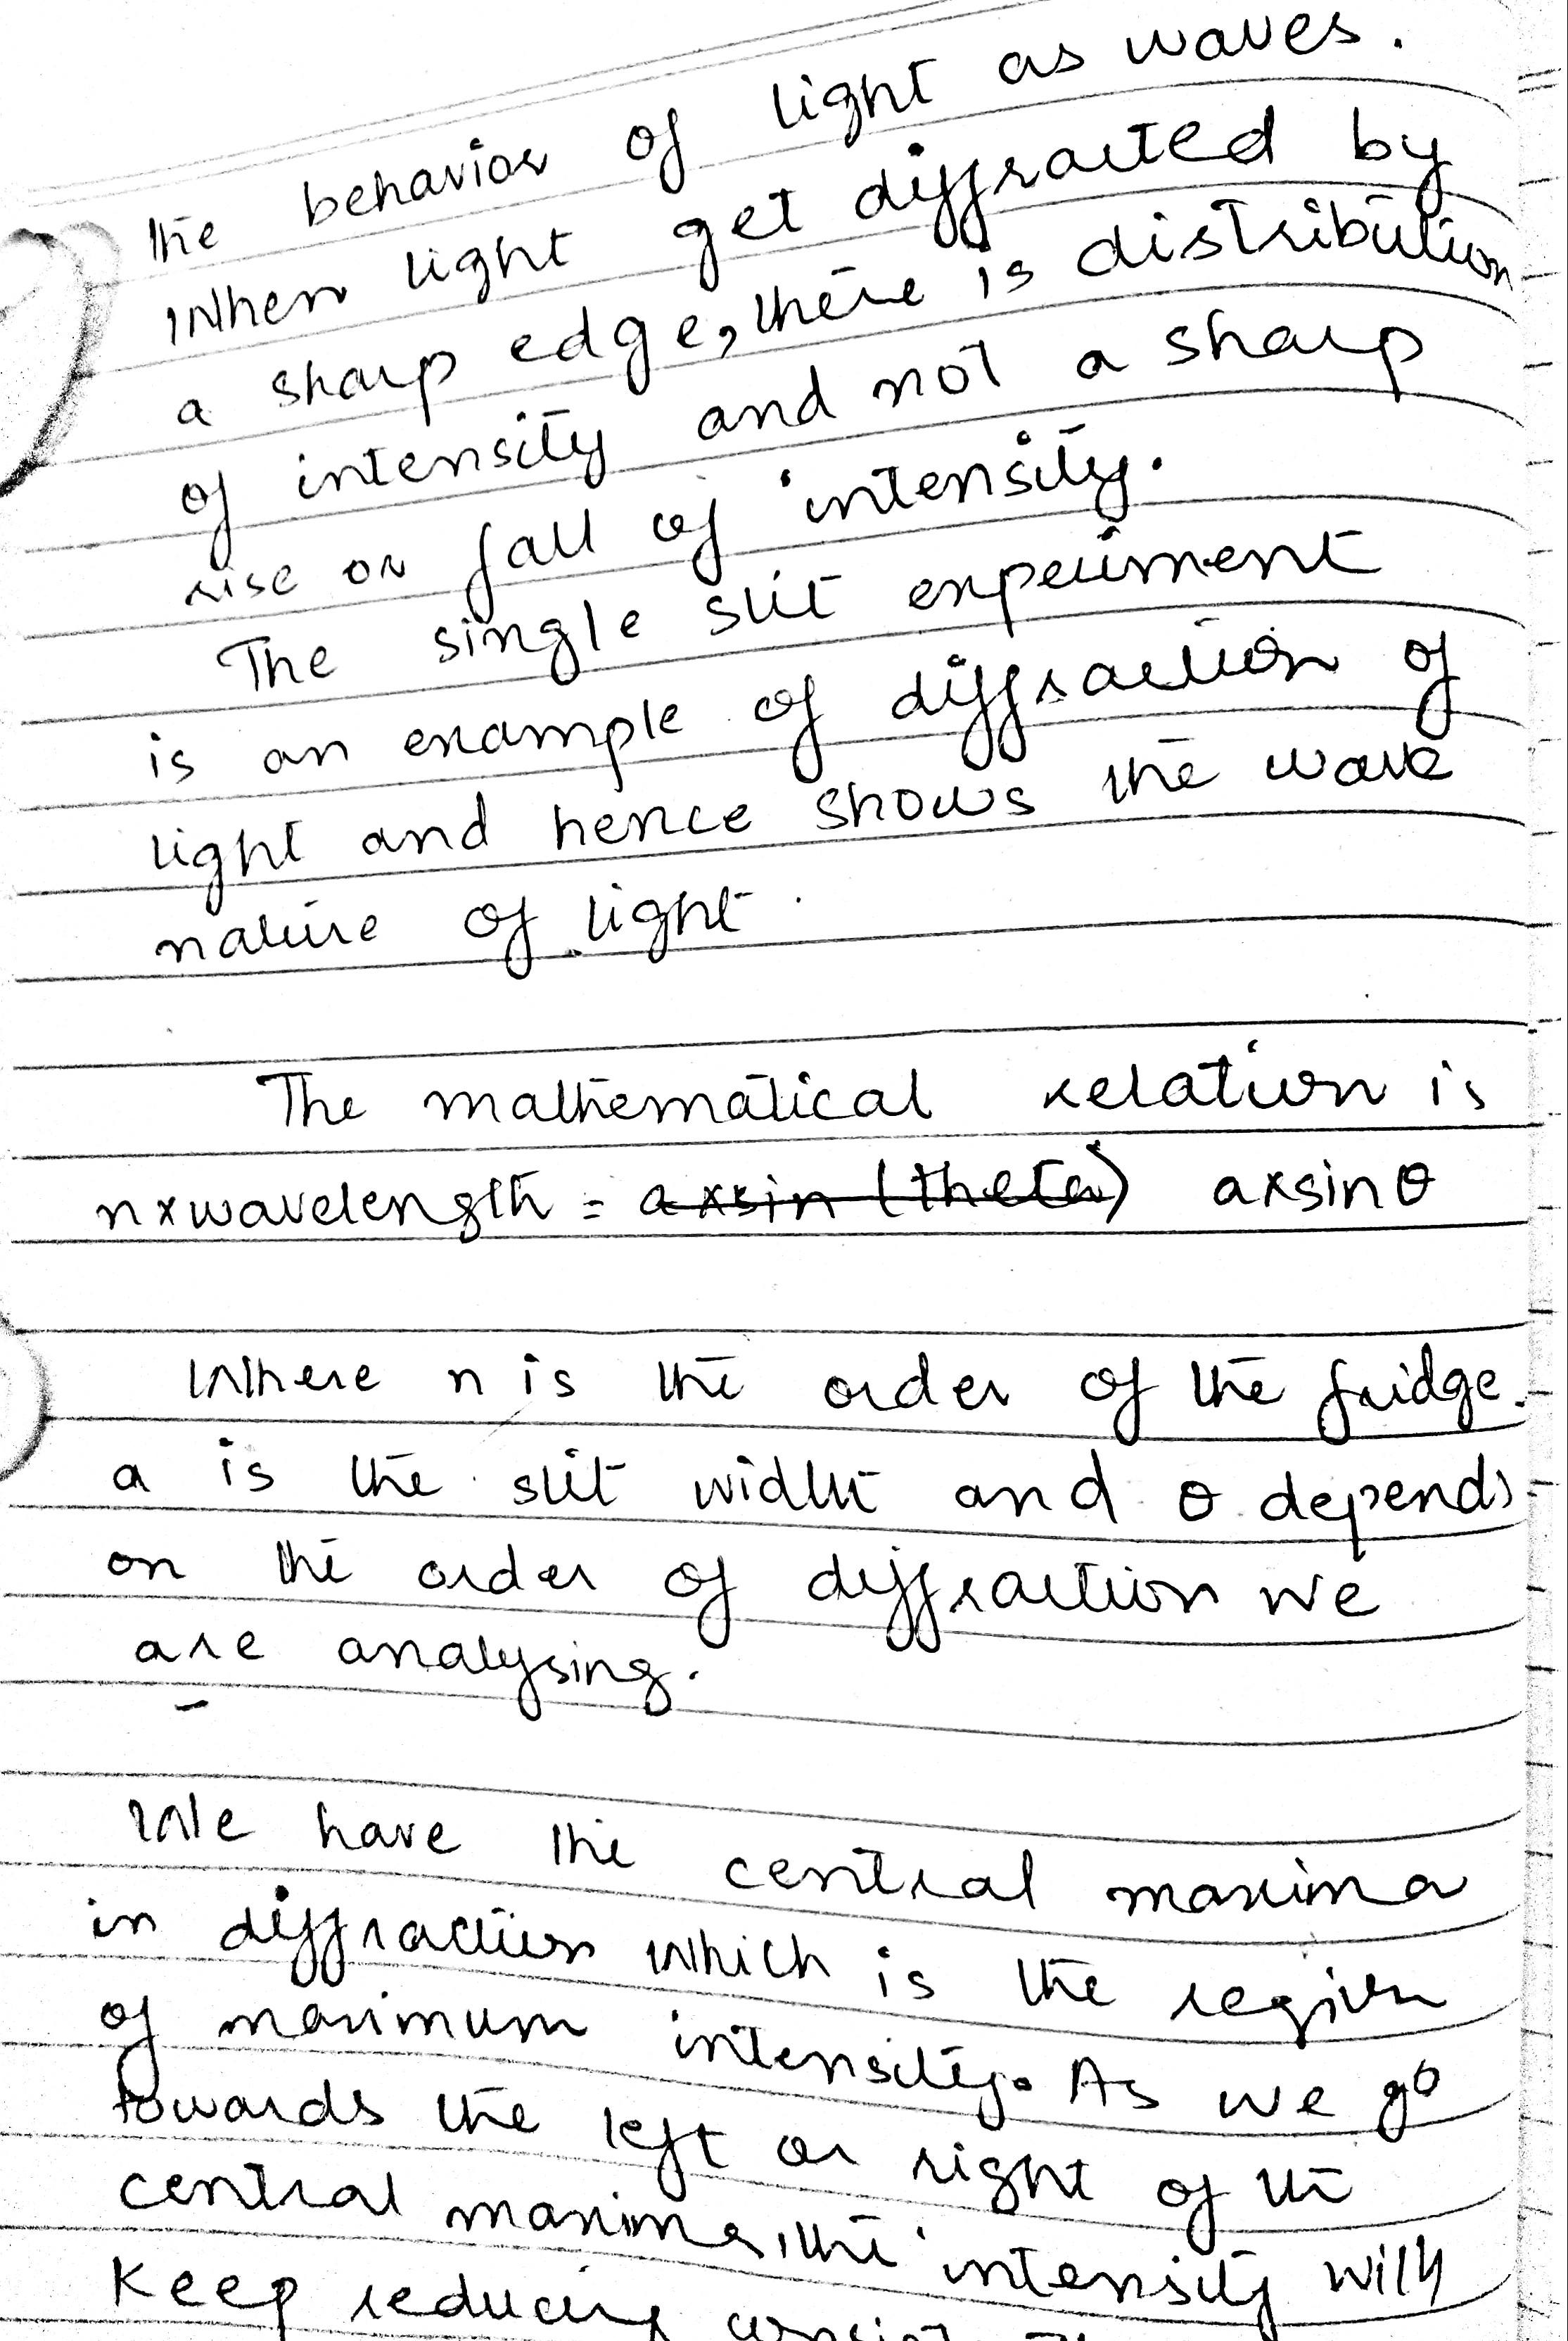 the behavior of light as waves.
When light get diffracted by
a sharp edge, there is distribution
of intensity and not a sharp
rise or fall of intensity.
The single slit experiment
is an example of diffraction of
light and hence shows the wave
nature of light.
The mathematical relation is
n×wavelength = a×sin (theta) a×sin θ
Where n is the order of the fridge.
a is the slit width and θ depends
on the order of diffraction we
are analysing.
We have the central maxima
in diffraction which is the region
of maximum intensity. As we go
towards the left or right of the
central maxima, the intensity will
keep reducing